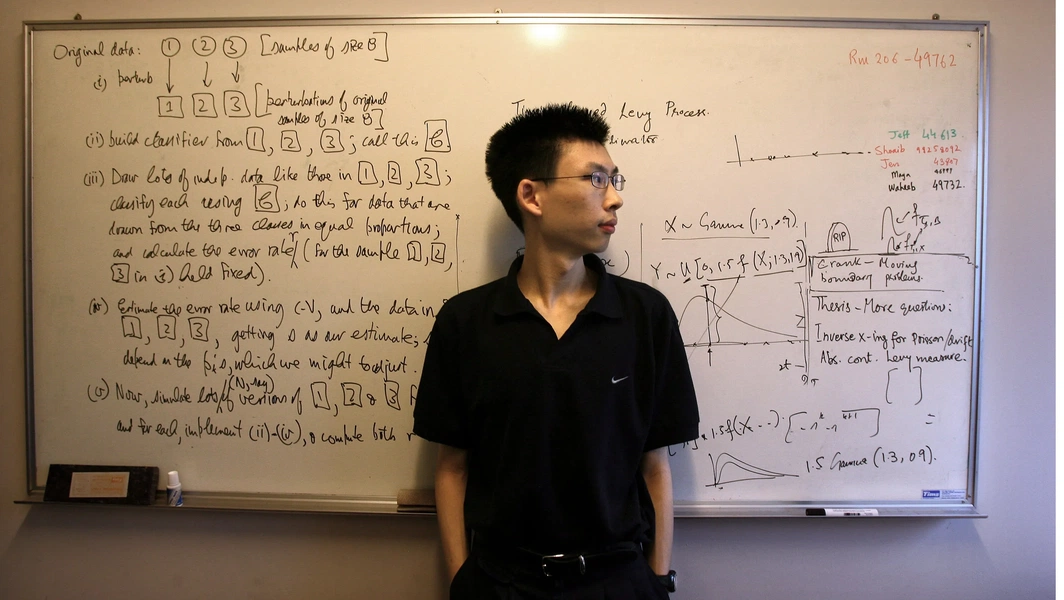 Original data: 1 2 3 [samples of size B]
(i) perturb
1 2 3 [perturbations of original
samples of size B]
(ii) build classifier from 1, 2, 3; call this C
(iii) Draw lots of indep. data like those in 1, 2, 3;
classify each using C; do this for data that are
drawn from the three classes in equal proportions;
and calculate the error rate (for the sample 1, 2,
3 in (i) held fixed).
(iv) Estimate the error rate using C-V, and the data in
1, 2, 3, getting s as our estimate;
depend on the p's, which we might to adjust.
(v) Now, simulate lots (N, say) of versions of 1, 2 & 3
and for each, implement (ii)-(iv), & compute both
Levy Process.
X ~ Gamma (1.3, 0.9).
Y ~ U[0, 1.5 f(X; 1.3, 1.9)]
1.5 f(X
1.5 Gamma (1.3, 0.9).
Rm 206 - 49762
Jeff 44613
Shoaib 98258092
Jens 43807
Maya
Waheeb 49732.
RIP
Crank - Moving
boundary problems.
Thesis - More question:
Inverse x-ing for Poisson/drift
Abs. cont. Levy measure.